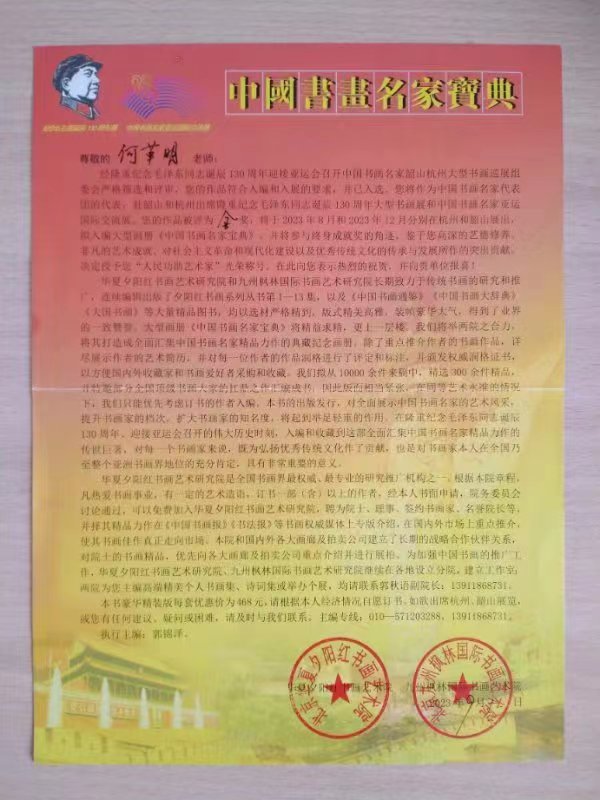 中國書畫名家寶典
尊敬的 何革明 老师：
经隆重纪念毛泽东同志诞辰130周年迎接亚运会召开中国书画名家韶山杭州大型书画巡展组
委会严格筛选和评审，您的作品符合入编和入展的要求，并已入选。您将作为中国书画名家代表
团的代表，赴韶山和杭州出席隆重纪念毛泽东同志诞辰130周年大型书画展和中国书画名家亚运
国际交流展。您的作品被评为 金 奖，将于2023年8月和2023年12月分别在杭州和韶山展出，
拟入编大型画册《中国书画名家宝典》，并将参与终身成就奖的角逐。鉴于您高深的艺德修养、
非凡的艺术成就、对社会主义革命和现代化建设以及优秀传统文化的传承与发展所作的突出贡献，
决定授予您“人民功勋艺术家”光荣称号。在此向您表示热烈的祝贺，并向贵单位报喜！
华夏夕阳红书画艺术研究院和九州枫林国际书画艺术研究院长期致力于传统书画的研究和推
广，连续编辑出版了夕阳红书画系列丛书第1—13集，以及《中国书画通鉴》《中国书画大辞典》
《大国画》等大量精品图书，均以选材严格精到、版式精美高雅、装帧豪华大气，得到了业界
的一致赞誉。大型画册《中国书画名家宝典》将精益求精，更上一层楼。我们将举两院之合力，
将其打造成全面汇集中国书画名家精品力作的典藏纪念画册。除了重点推介作者的书画作品，详
尽展示作者的艺术简历，并对每一位作者的作品润格进行了评定和标注，并颁发权威润格证书，
以方便国内外收藏家和书画爱好者采购和收藏。我们拟从10000余件来稿中，精选300余件精品，
并特邀部分全国顶级书画大家的扛鼎之作汇编成书。因此版面相当紧张，在同等艺术水准的情况
下，我们只能优先考虑订书的作者入编。本书的出版发行，对全面展示中国书画名家的艺术风采，
提升书画家的档次，扩大书画家的知名度，将起到举足轻重的作用。在隆重纪念毛泽东同志诞辰
130周年、迎接亚运会召开的伟大历史时刻，入编和收藏到这部全面汇集中国书画名家精品力作的
传世巨著，对每一个书画家来说，既为弘扬优秀传统文化作了贡献，也是对书画家本人在全国乃
至整个亚洲书画界地位的充分肯定，具有非常重要的意义。
华夏夕阳红书画艺术研究院是全国书画界最权威、最专业的研究推广机构之一。根据本院章程，
凡热爱书画事业，有一定的艺术造诣，订书一部（含）以上的作者，经本人书面申请，院务委员会
讨论通过，可以免费加入华夏夕阳红书画艺术研究院，聘为院士、理事、签约书画家、名誉院长等，
并择其精品力作在《中国书画报》《书法报》等书画权威媒体上专版介绍，在国内外市场上重点推介，
使其书画佳作真正走向市场。本院和国内外各大画廊及拍卖公司建立了长期的战略合作伙伴关系，
对院士的书画精品，优先向各大画廊及拍卖公司重点介绍并进行展拍。为加强中国书画的推广工
作，华夏夕阳红书画艺术研究院、九州枫林国际书画艺术研究院继续在各地设立分院，建立工作室；
两院为您主编高端精美个人书画集、诗词集或举办个展，均请联系郭秋语副院长：13911868731。
本书豪华精装版每套优惠价为468元，请根据本人经济情况自愿订书。如欲出席杭州、韶山展览，
或您有任何建议、疑问或困难，请及时与我们联系。主编专线：010—571203288，13911868731。
执行主编：郭锦泽。